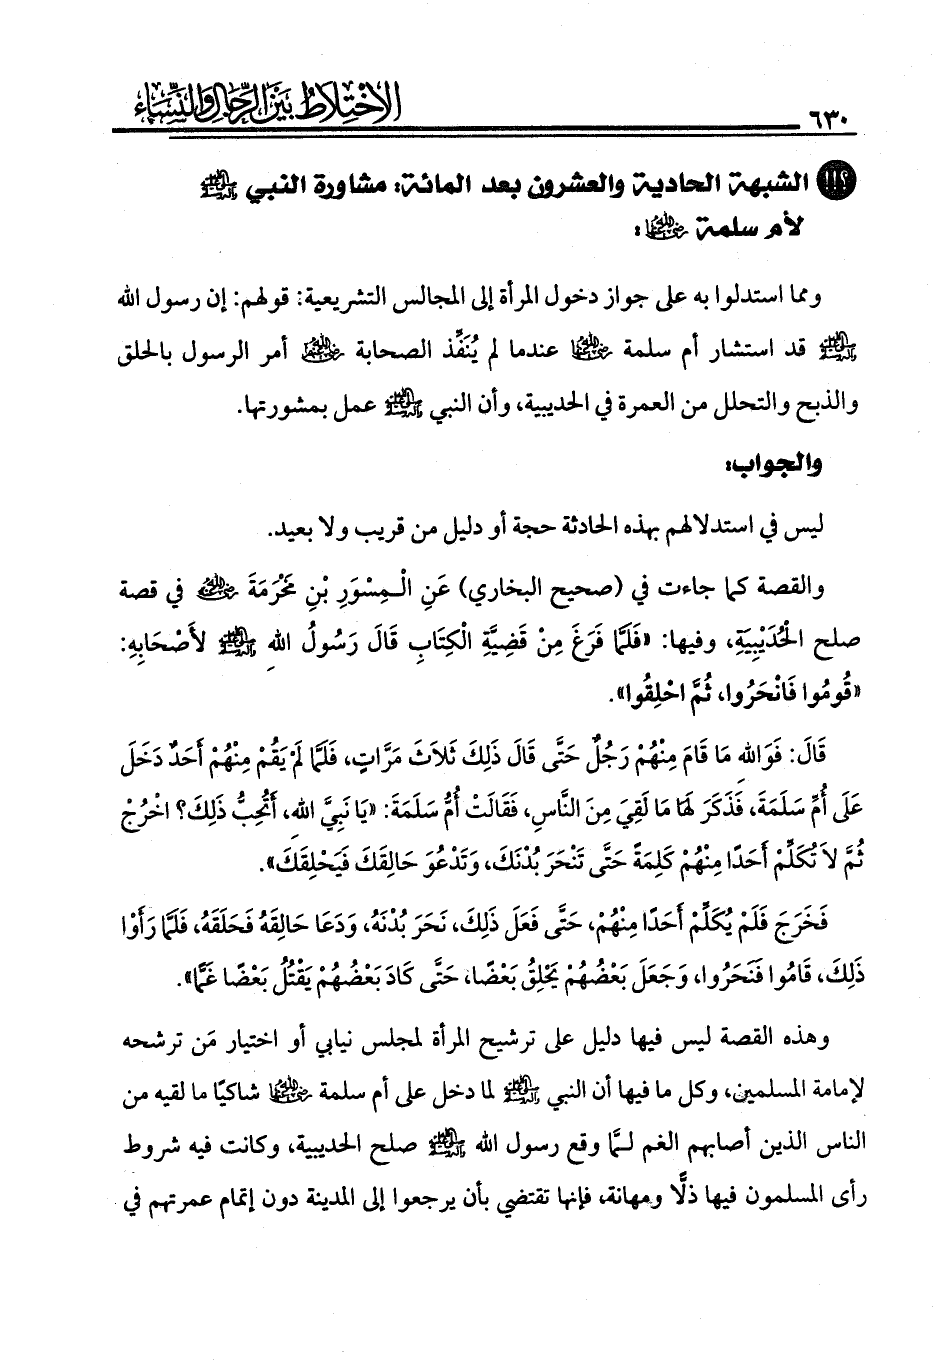 ٦٣٠ الاخْتِلَاطُ بَيْنَ الرِّجَالِ وَالنِّسَاءِ
الشبهة الحادية والعشرون بعد المائة: مشاورة النبي ﷺ
لأم سلمة رضي الله عنها :
ومما استدلوا به على جواز دخول المرأة إلى المجالس التشريعية: قولهم: إن رسول الله
ﷺ قد استشار أم سلمة رضي الله عنها عندما لم يُنَفِّذ الصحابة رضي الله عنهم أمر الرسول بالحلق
والذبح والتحلل من العمرة في الحديبية، وأن النبي ﷺ عمل بمشورتها.
والجواب:
ليس في استدلالهم بهذه الحادثة حجة أو دليل من قريب ولا بعيد.
والقصة كما جاءت في (صحيح البخاري) عَنِ الْمِسْوَرِ بْنِ مَخْرَمَةَ رضي الله عنه في قصة
صلح الْحُدَيْبِيَةِ، وفيها: «فَلَمَّا فَرَغَ مِنْ قَضِيَّةِ الْكِتَابِ قَالَ رَسُولُ اللهِ ﷺ لأَصْحَابِهِ:
«قُومُوا فَانْحَرُوا، ثُمَّ احْلِقُوا».
قَالَ: فَوَاللهِ مَا قَامَ مِنْهُمْ رَجُلٌ حَتَّى قَالَ ذَلِكَ ثَلاَثَ مَرَّاتٍ، فَلَمَّا لَمْ يَقُمْ مِنْهُمْ أَحَدٌ دَخَلَ
عَلَى أُمِّ سَلَمَةَ، فَذَكَرَ لَهَا مَا لَقِيَ مِنَ النَّاسِ، فَقَالَتْ أُمُّ سَلَمَةَ: «يَا نَبِيَّ اللهِ، أَتُحِبُّ ذَلِكَ؟ اخْرُجْ
ثُمَّ لاَ تُكَلِّمْ أَحَدًا مِنْهُمْ كَلِمَةً حَتَّى تَنْحَرَ بُدْنَكَ، وَتَدْعُوَ حَالِقَكَ فَيَحْلِقَكَ».
فَخَرَجَ فَلَمْ يُكَلِّمْ أَحَدًا مِنْهُمْ، حَتَّى فَعَلَ ذَلِكَ، نَحَرَ بُدْنَهُ، وَدَعَا حَالِقَهُ فَحَلَقَهُ، فَلَمَّا رَأَوْا
ذَلِكَ، قَامُوا فَنَحَرُوا، وَجَعَلَ بَعْضُهُمْ يَحْلِقُ بَعْضًا، حَتَّى كَادَ بَعْضُهُمْ يَقْتُلُ بَعْضًا غَمًّا».
وهذه القصة ليس فيها دليل على ترشيح المرأة لمجلس نيابي أو اختيار مَن ترشحه
لإمامة المسلمين، وكل ما فيها أن النبي ﷺ لما دخل على أم سلمة رضي الله عنها شاكيًا ما لقيه من
الناس الذين أصابهم الغم لـمَّا وقع رسول الله ﷺ صلح الحديبية، وكانت فيه شروط
رأى المسلمون فيها ذلًّا ومهانة، فإنها تقتضي بأن يرجعوا إلى المدينة دون إتمام عمرتهم في